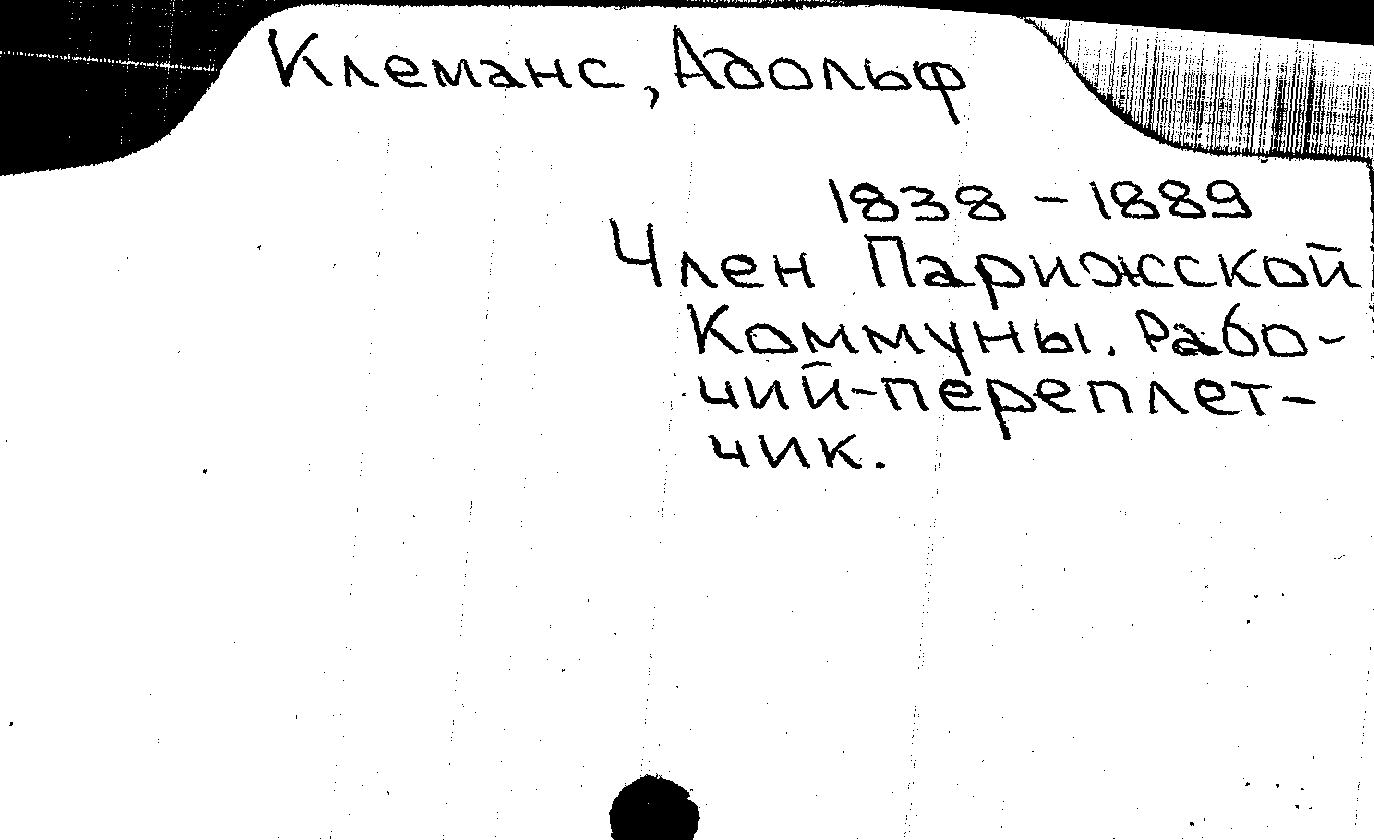 Клеманс, Адольф
1838 - 1889
Член Парижской
Коммуны. Рабо-
чий-переплет-
чик.